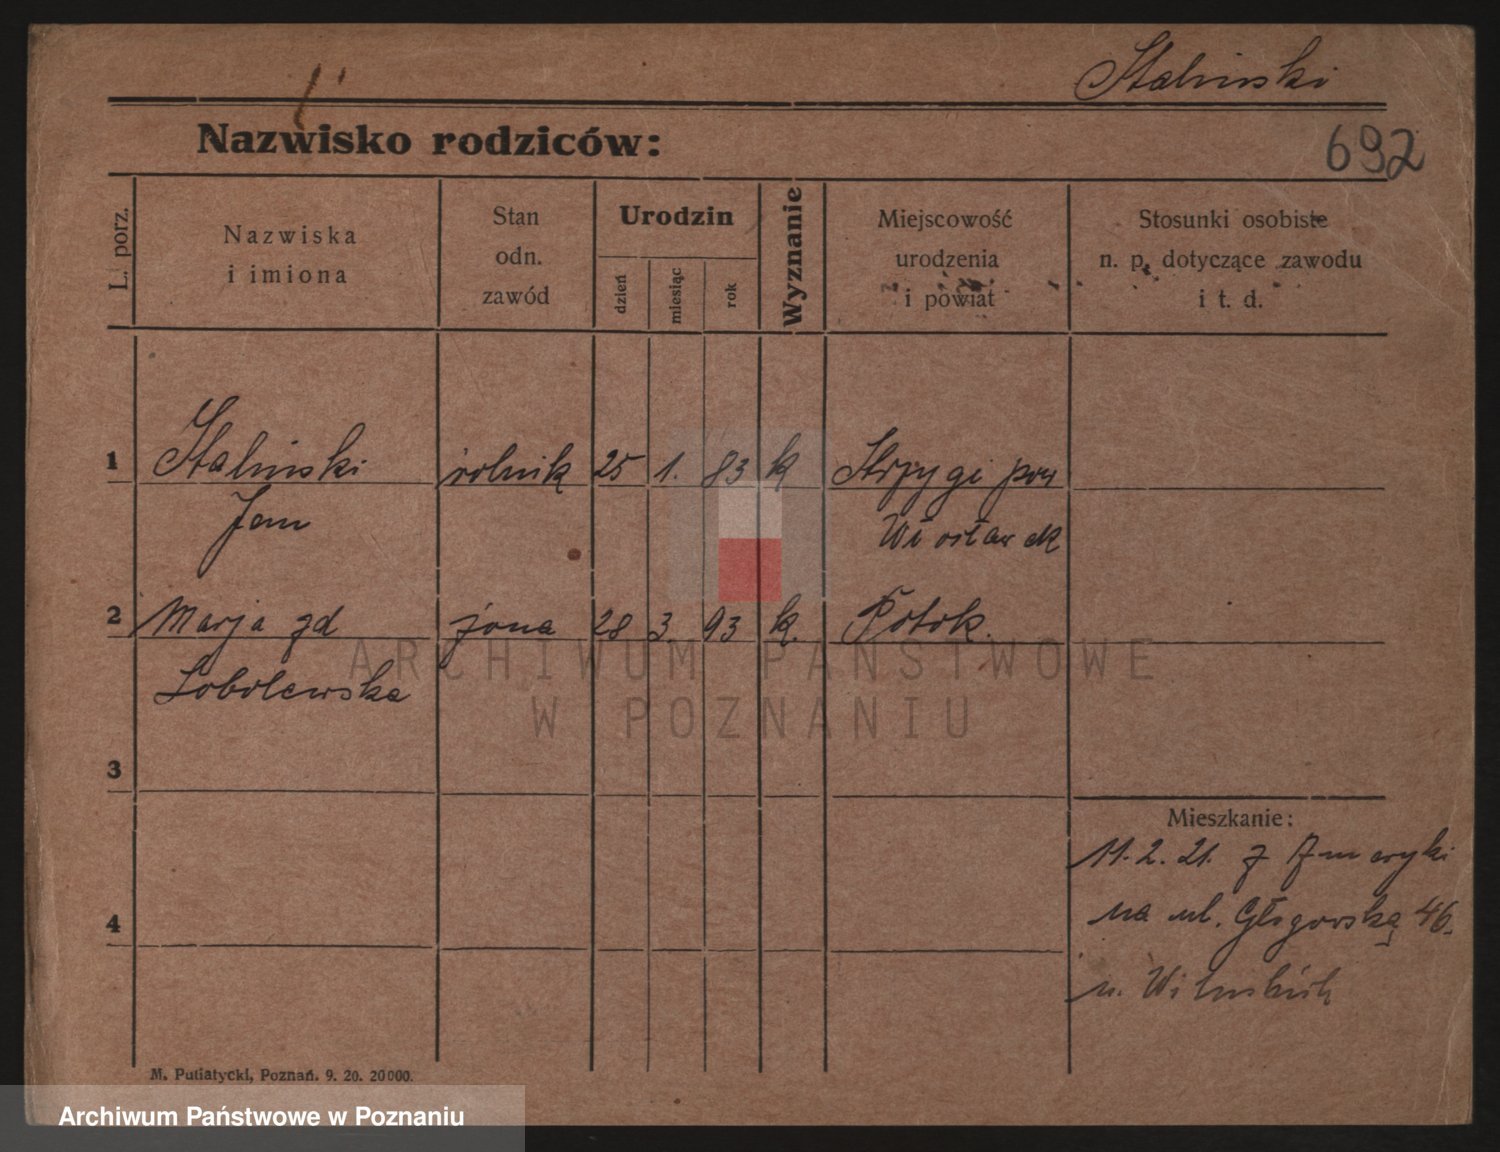 Stalinski
Nazwisko rodziców:
692
L. porz.
Nazwiska
i imiona
Stan
odn.
zawód
Urodzin
dzień
miesiąc
rok
Wyznanie
Miejscowość
urodzenia
i powiat
Stosunki osobiste
n. p. dotyczące zawodu
i t. d.
1 Stalinski rolnik 25 1. 83 k
Jan
2 Marja zd żona 28 3. 93 k. Potok.
ARCHIWUM PAŃSTWOWE
W POZNANIU
3
Mieszkanie:
11. 2. 21. z Ameryki
4
na ul. Głogowską 46.
M. Putiatycki, Poznań. 9. 20. 20000.
Archiwum Państwowe w Poznaniu